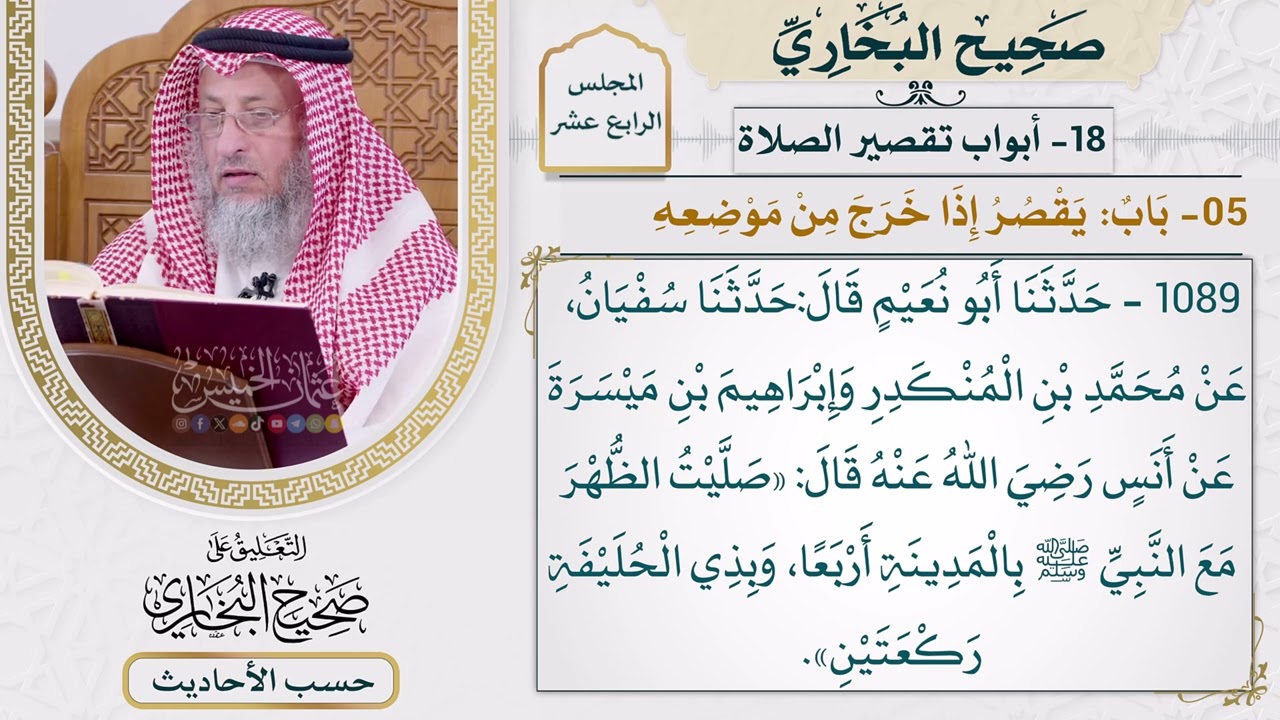 صَحِيح البُخَارِيِّ
المجلس
الرابع عشر
18- أبواب تقصير الصلاة
05- بَابٌ: يَقْصُرُ إِذَا خَرَجَ مِنْ مَوْضِعِهِ
1089 - حَدَّثَنَا أَبُو نُعَيْمٍ قَالَ:حَدَّثَنَا سُفْيَانُ،
عَنْ مُحَمَّدِ بْنِ الْمُنْكَدِرِ وَإِبْرَاهِيمَ بْنِ مَيْسَرَةَ
عَنْ أَنَسٍ رَضِيَ اللهُ عَنْهُ قَالَ: «صَلَّيْتُ الظُّهْرَ
مَعَ النَّبِيِّ ﷺ بِالْمَدِينَةِ أَرْبَعًا، وَبِذِي الْحُلَيْفَةِ
رَكْعَتَيْنِ».
عثمان الخميس
التَّعْلِيقُ عَلَى
صَحِيح البُخَارِي
حسب الأحاديث